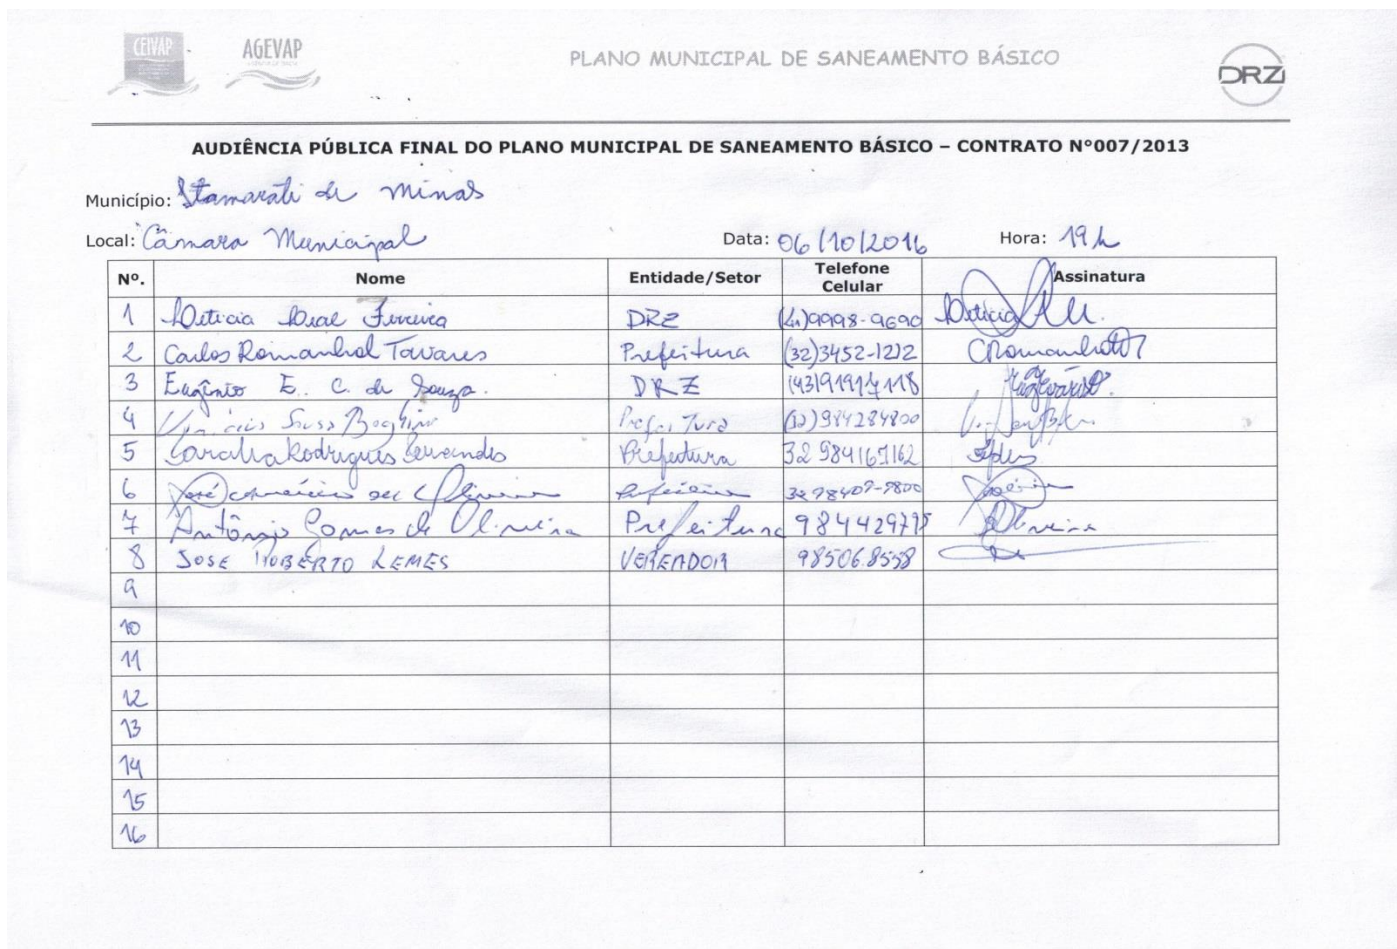 CEIVAP AGEVAP PLANO MUNICIPAL DE SANEAMENTO BÁSICO DRZ
AUDIÊNCIA PÚBLICA FINAL DO PLANO MUNICIPAL DE SANEAMENTO BÁSICO – CONTRATO N°007/2013
Município: Itamarati de Minas
Local: Câmara Municipal Data: 06/10/2016 Hora: 19h
Nº. Nome Entidade/Setor Telefone Celular Assinatura
1 Leticia Leal Ferreira DRZ 9998-9690 Leticia
2 Carlos Romanhol Tavares Prefeitura (32)3452-1212 CRomanholT
3 Eugênio E. C. de Souza. DRZ
4 Vinícius Sousa Prefeitura 984284800
5 Rodrigues Prefeitura 32 984167162
6 José de Oliveira 32 98409-9800
7 Antônio Gomes de Oliveira Prefeitura Oliveira
8 JOSE ROBERTO LEMES VEREADOR 985068558
9
10
11
12
13
14
15
16